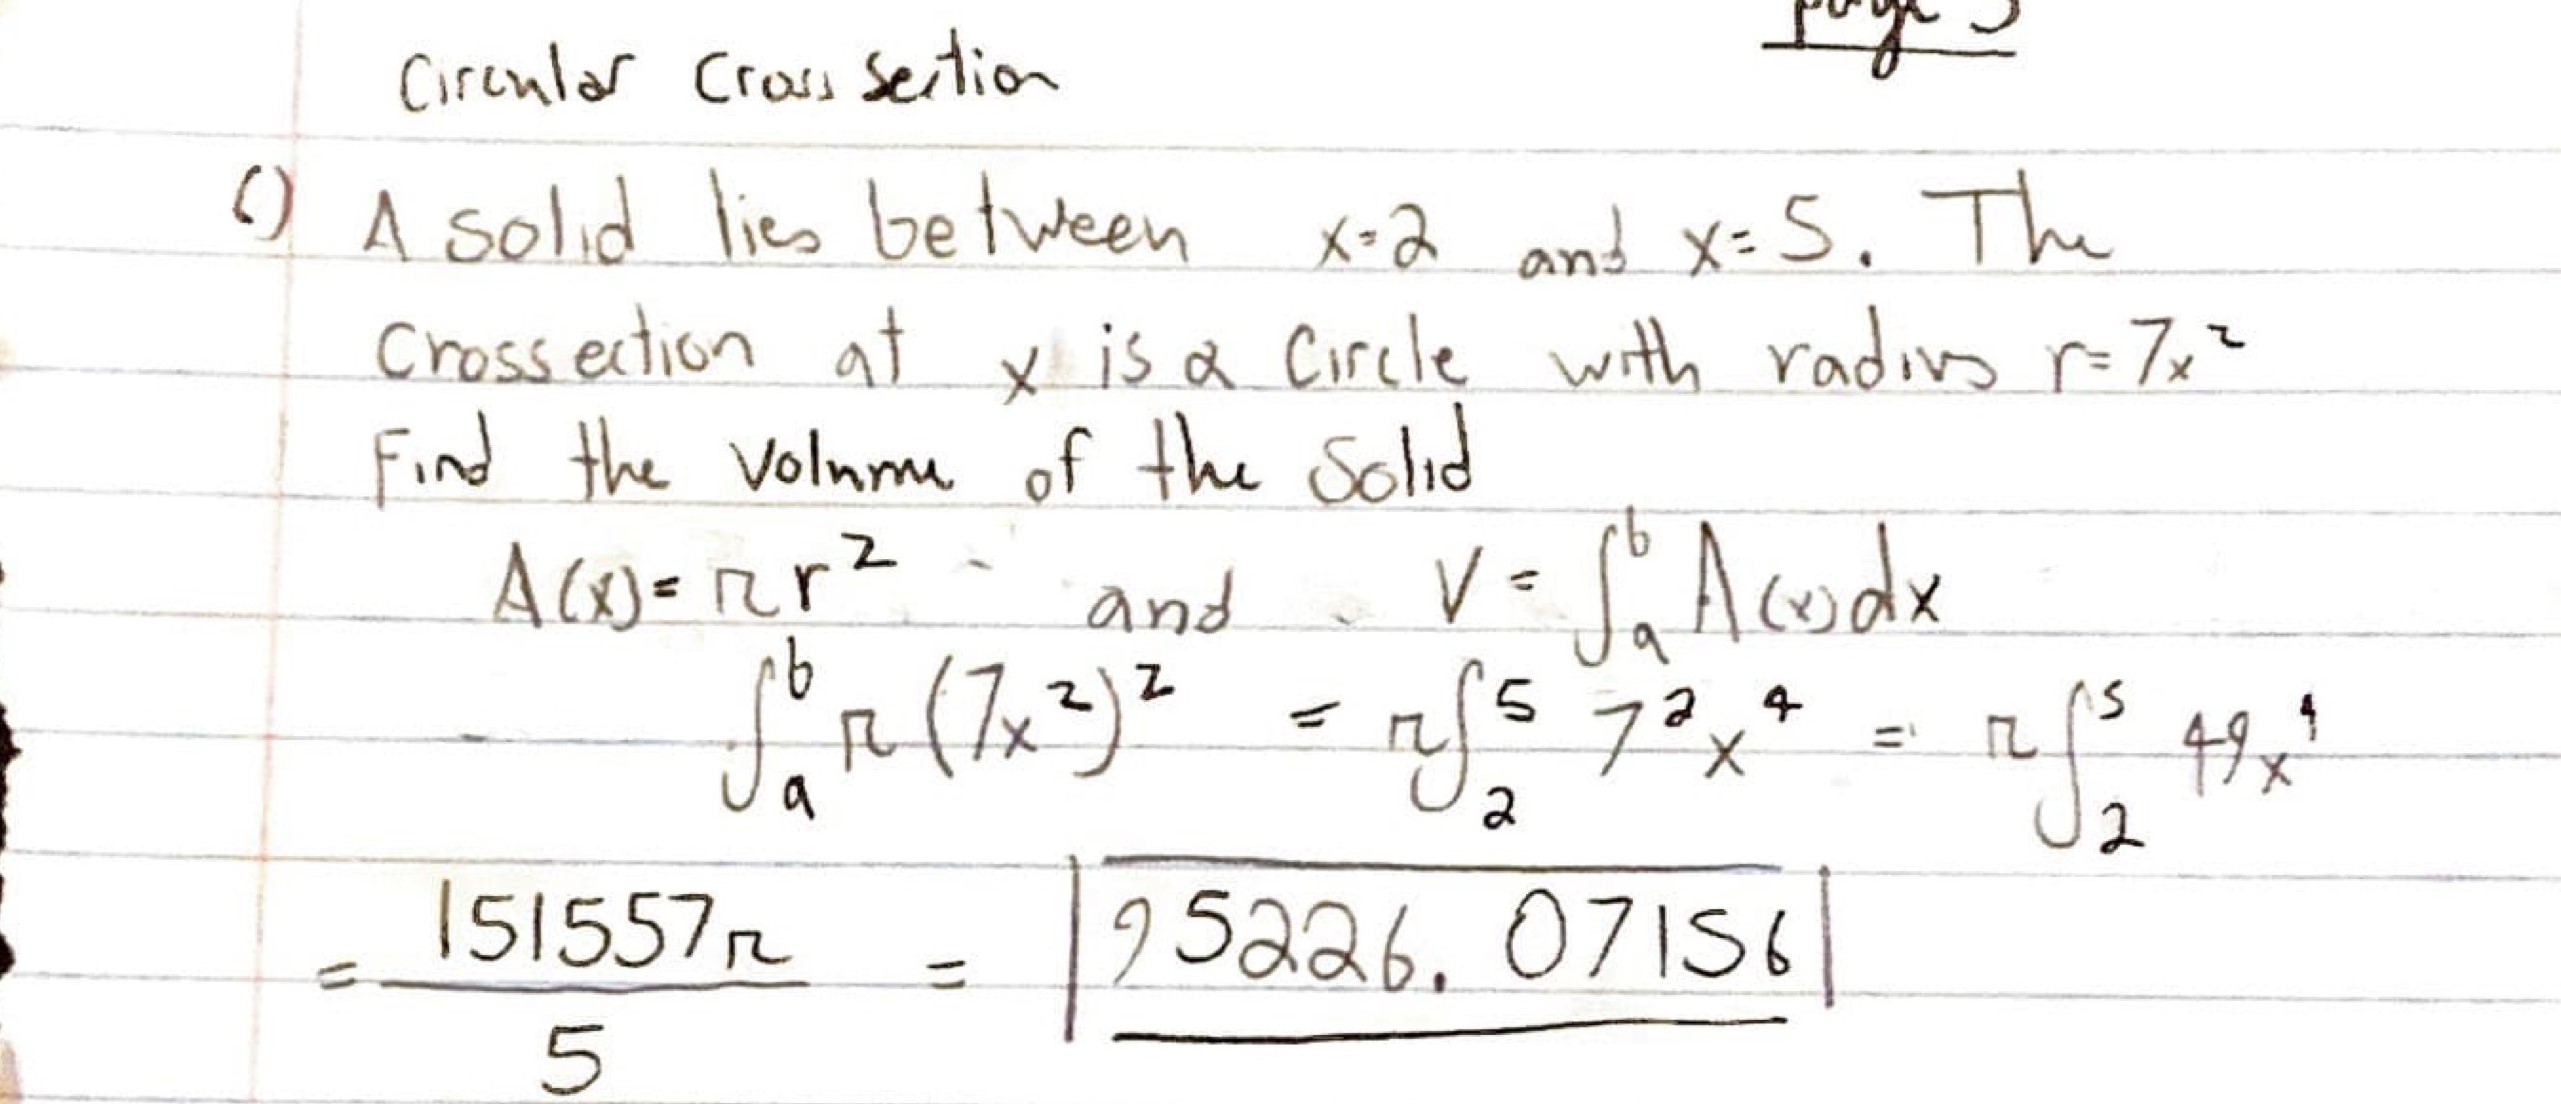 page 3
Circular Cross Section
C) A solid lies between x=2 and x=5. The
Crossection at x is a Circle with radius r=7x²
Find the Volume of the Solid
A(x)=πr² and V=∫ₐᵇ A(x)dx
∫ₐᵇ π(7x²)² = π∫₂⁵ 7²x⁴ = π∫₂⁵ 49x⁴
= 151557π/5 = 95226.07156